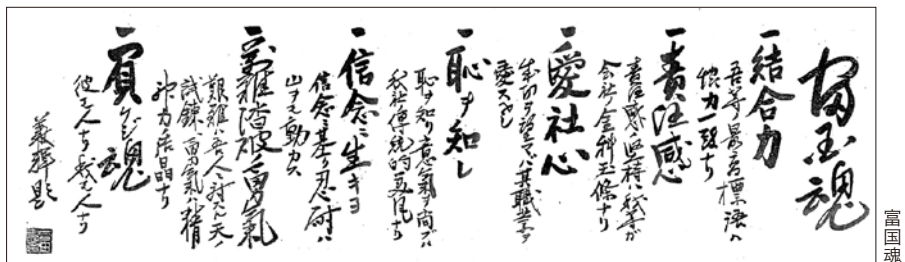 富国魂
一結合力
吾等ノ最高標語ハ
協力一致ナリ
一責任感
責任感ノ堅持ハ我等ガ
会社ノ金科玉條ナリ
一愛社心
成功ヲ望マバ其職業ヲ
愛スベシ
一恥ヲ知レ
恥ヲ知リ意氣ヲ尚ブハ
我社傳統的美風ナリ
一信念ニ生キヨ
信念ニ基ク忍耐ハ
山ヲモ動カス
一萬難踏破ノ勇氣
艱難ハ吾人ニ対スル天ノ
試錬ニ勇氣ハ精
神力ノ結晶ナリ
一負ケジ魂
彼モ人ナリ我モ人ナリ
義輝題
富国魂